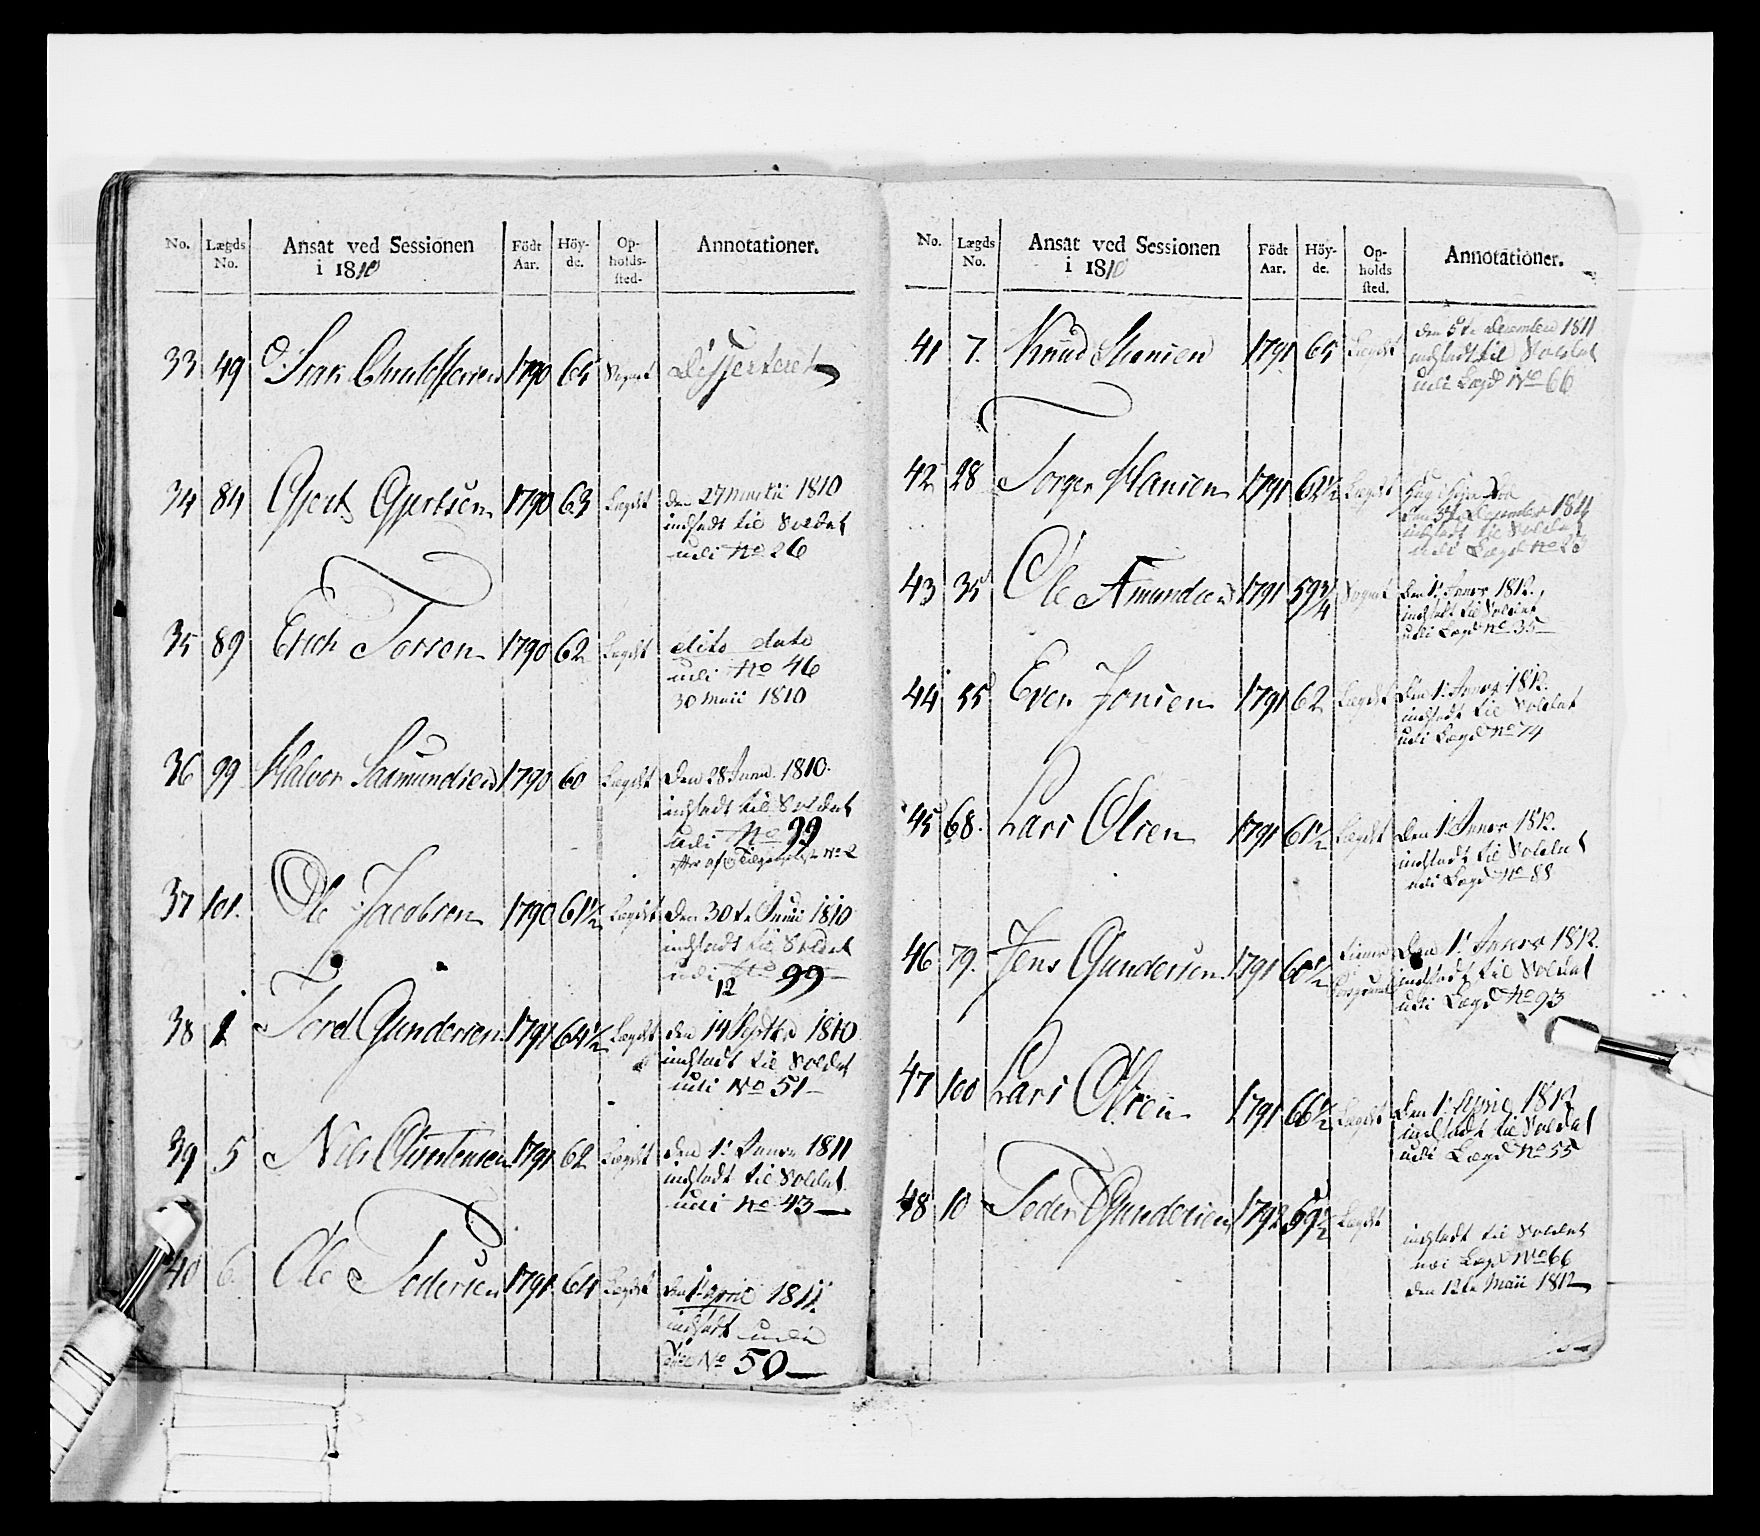 No. Lægds No. Ansat ved Sessionen i 1810 Födt Aar. Höy-de. Op-holds-sted. Annotationer.
33 49 Isak 1790 Sognet Desserteret
34 84 Gjert Gjertsen 1790 63 Lægdet den 27 Martii 1810
indsadt til Soldat
udi No 26
35 89 Erich Torsen 1790 62 Lægdet dito dato
udi No 46
30 Maii 1810
36 99 Halvor Saamundsen 1790 60 Lægdet Den 28 Junii 1810.
indsadt til Soldat
udi No 99
37 101. Ole Jacobsen 1790 61½ Lægdet Den 30te Junii 1810
indsadt til Soldat
udi No 99
12
38 1 Tord Gundersen 1791 64½ Lægdet den 14 Septbr 1810
indsadt til Soldat
udi No 51
39 5 Nils Christensen 1791 62 Lægdet den 1. Janr 1811
indsadt til Soldat
udi No 43
40 6. Ole Pedersen 1791 64 Lægdet den 1 April 1811
indsadt udi
No 50
No. Lægds No. Ansat ved Sessionen i 1810 Födt Aar. Höy-de. Op-holds sted. Annotationer.
41 7. Knud Hansen 1791 65 Lægdet den 5te December 1811
indsadt til Soldat
udi Lægd No 66
42 28 Torger Hansen 1791 62½ Lægdet
den 5te December 1811
indsadt til Soldat
udi Lægd No 23
43 35 Ole Amundsen 1791 59¾ Sognet Den 1. Janr 1812.
indsadt til Soldat
udi Lægd No 35
44 55 Even Jonsen 1791 62 Lægdet Den 1. Janr 1812.
indsadt til Soldat
udi Lægd No 74
45 68. Lars Olsen 1791 61½ Lægdet Den 1. Janr 1812.
indsadt til Soldat
udi Lægd No 88
46 79. Jens Gundersen 1791 60½ Den 1. Janr 1812.
indsadt til Soldat
udi Lægd No 93
47 100 Lars Olsen 1791 66½ Lægdet Den 1. April 1812
indsadt til Soldat
udi Lægd No 55
48 10 Peder Gundersen 1792 59½ Lægdet
indsadt til Soldat
udi Lægd No 66
den 12te Maii 1812